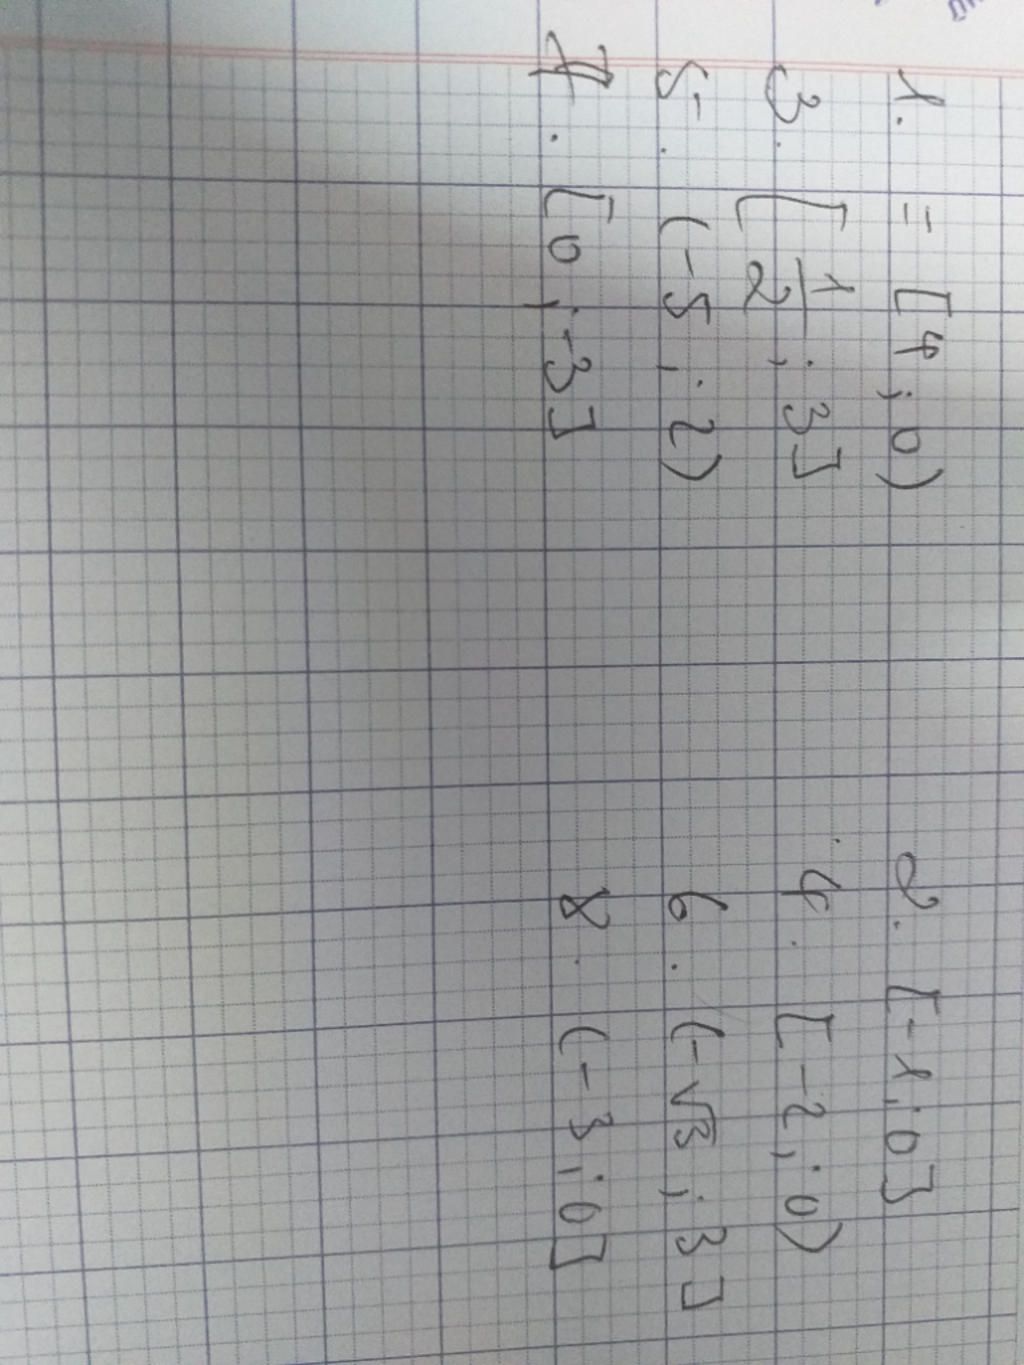 1. = [4 ; 0) 2. [-1 ; 0]
3. [1/2 ; 3] 4. [-2 ; 0)
5. (-5 ; 2) 6. (-√3 ; 3]
7. [0 ; -3] 8. (-3 ; 0]